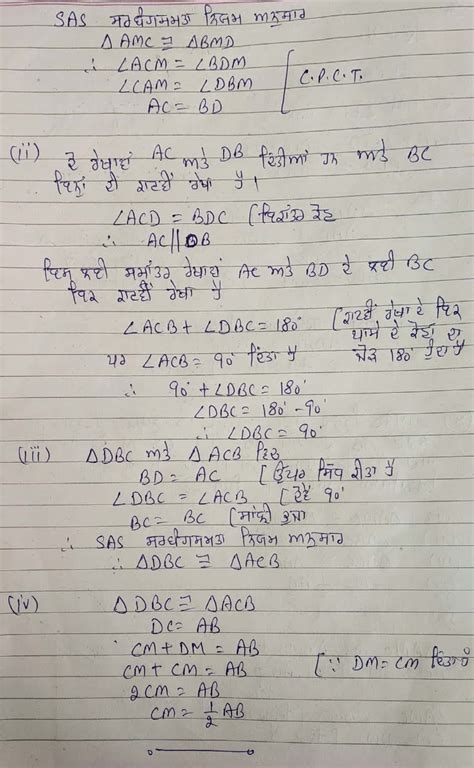 SAS ਸਰਬੰਗਸਮਤਾ ਨਿਯਮ ਅਨੁਸਾਰ
△AMC ≅ △BMD
∴ ∠ACM = ∠BDM
∠CAM = ∠DBM [C.P.C.T.
AC = BD
(ii) ਦੋ ਰੇਖਾਵਾਂ AC ਅਤੇ DB ਦਿੱਤੀਆਂ ਹਨ ਅਤੇ BC
ਇਨ੍ਹਾਂ ਦੀ ਕਾਟਵੀਂ ਰੇਖਾ ਹੈ।
∠ACD = BDC (ਇਕਾਂਤਰ ਕੋਣ
∴ AC || DB
ਇਸ ਲਈ ਸਮਾਂਤਰ ਰੇਖਾਵਾਂ AC ਅਤੇ BD ਦੇ ਲਈ BC
ਇਕ ਕਾਟਵੀਂ ਰੇਖਾ ਹੈ
∠ACB + ∠DBC = 180° [ਕਾਟਵੀਂ ਰੇਖਾ ਦੇ ਇਕ
ਪਾਸੇ ਦੇ ਕੋਣਾਂ ਦਾ
ਪਰ ∠ACB = 90° ਦਿੱਤਾ ਹੈ ਜੋੜ 180° ਹੁੰਦਾ ਹੈ
∴ 90° + ∠DBC = 180°
∠DBC = 180° - 90°
∴ ∠DBC = 90°
(iii) △DBC ਅਤੇ △ACB ਵਿਚ
BD = AC [ਉੱਪਰ ਸਿੱਧ ਕੀਤਾ ਹੈ
∠DBC = ∠ACB [ਦੋਵੇਂ 90°
BC = BC (ਸਾਂਝੀ ਭੁਜਾ
∴ SAS ਸਰਬੰਗਸਮਤਾ ਨਿਯਮ ਅਨੁਸਾਰ
∴ △DBC ≅ △ACB
(iv) △DBC ≅ △ACB
DC = AB
CM + DM = AB
CM + CM = AB [∵ DM = CM ਦਿੱਤਾ ਹੈ
2CM = AB
CM = 1/2 AB